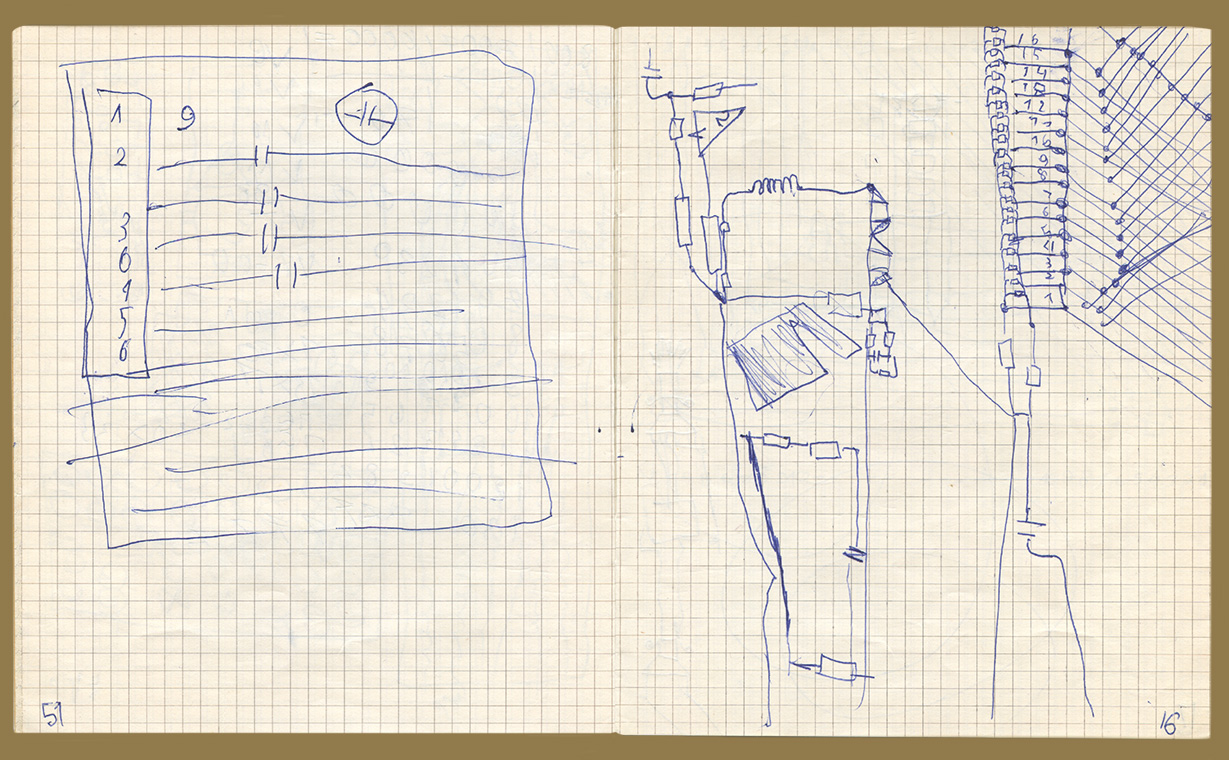 1 9
2
3
6
5
6
51
16
15
14
12
9
8
7
6
5
4
3
2
1
16